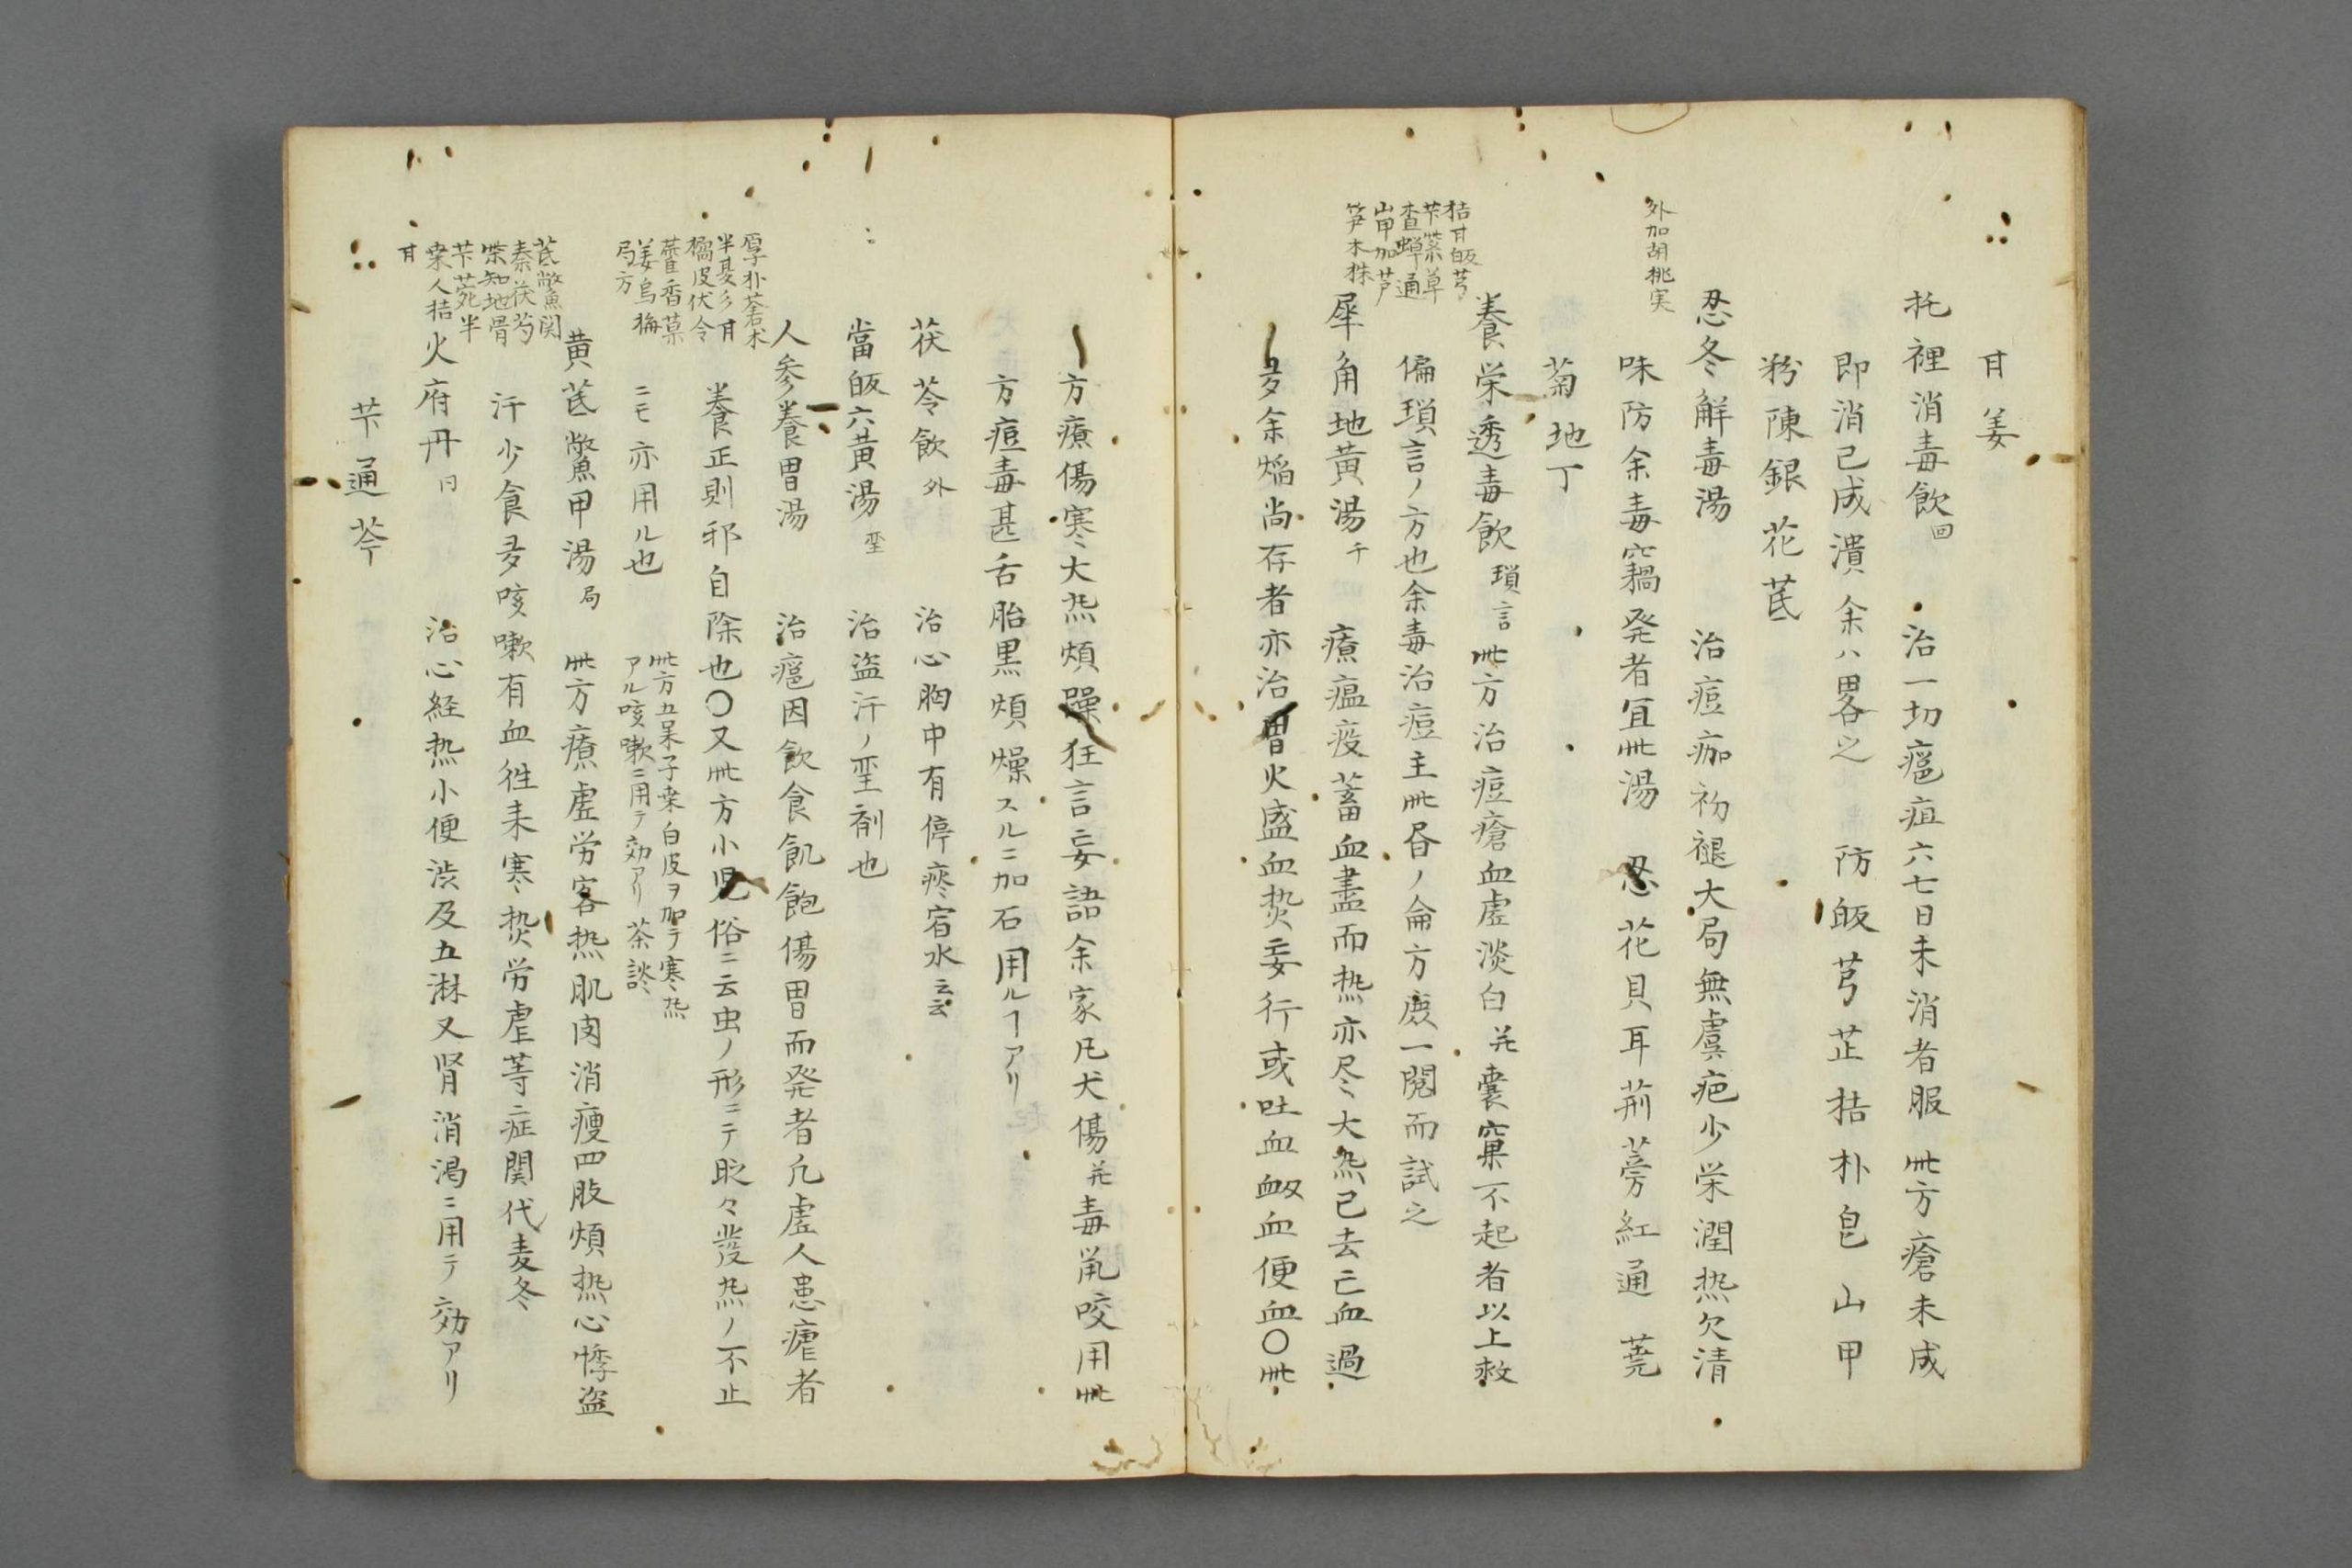 甘姜
托裡消毒飲回 治一切瘟疽六七日未消者服此方瘡未成
即消已成潰余ハ畧之 防皈芎芷桔朴皂山甲
粉陳銀花芪
忍冬解毒湯 治痘痂初褪大局無虞疤少栄潤热欠清
外加胡桃実
味防余毒竊発者冝此湯 忍花貝耳荊蒡紅通蕘
菊地丁
養栄透毒飲瑣言 此方治痘瘡血虚淡白并嚢窠不起者以上救
桔甘皈芎
芐紫草
査蝉通
山甲加芦
笋木株
偏瑣言ノ方也余毒治痘主此昼ノ侖方度一閲而試之
犀角地黄湯千 療瘟疫蓄血盡而热亦尽大热已去亡血過
多余焔尚存者亦治胃火盛血热妄行或吐血衂血便血〇此
方療傷寒大热煩躁狂言妄語余家凡犬傷并毒鼡咬用此
方痘毒甚舌胎黒煩燥スルニ加石用ルヿアリ
茯苓飲外 治心胸中有停痰宿水云云
當皈六黄湯 垩 治盗汗ノ垩剤也
人参養胃湯 治瘧因飲食飢飽傷胃而発者凡虚人患瘧者
厚朴蒼朮
半夏参甘
橘皮伏令
藿香草
姜烏梅
局方
養正則邪自除也〇又此方小児俗ニ云虫ノ形ニテ眽々發热ノ不止
ニモ亦用ル也 此方五呆子桒白皮ヲ加テ寒热
アル咳嗽ニ用テ効アリ 茶談
黄芪鱉甲湯局 此方療虚労客热肌肉消痩四肢煩热心悸盗
芪鱉関
秦茯芍
柴知地骨
芐菀半
桒人桔
甘
汗少食多咳嗽有血徃来寒热労虐等症関代麦冬
火府丹同 治心経热小便渋及五淋又腎消渇ニ用テ効アリ
芐通芩